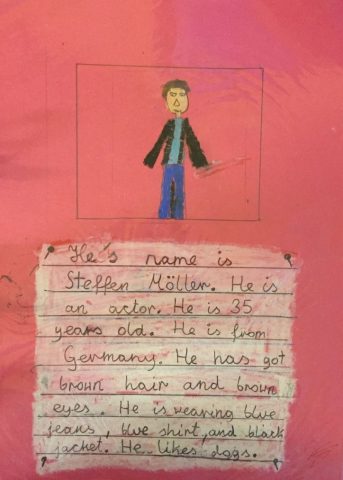 He's name is
Steffen Möller. He is
an actor. He is 35
years old. He is from
Germany. He has got
brown hair and brown
eyes. He is wearing blue
jeans, blue shirt, and black
jacket. He likes dogs.